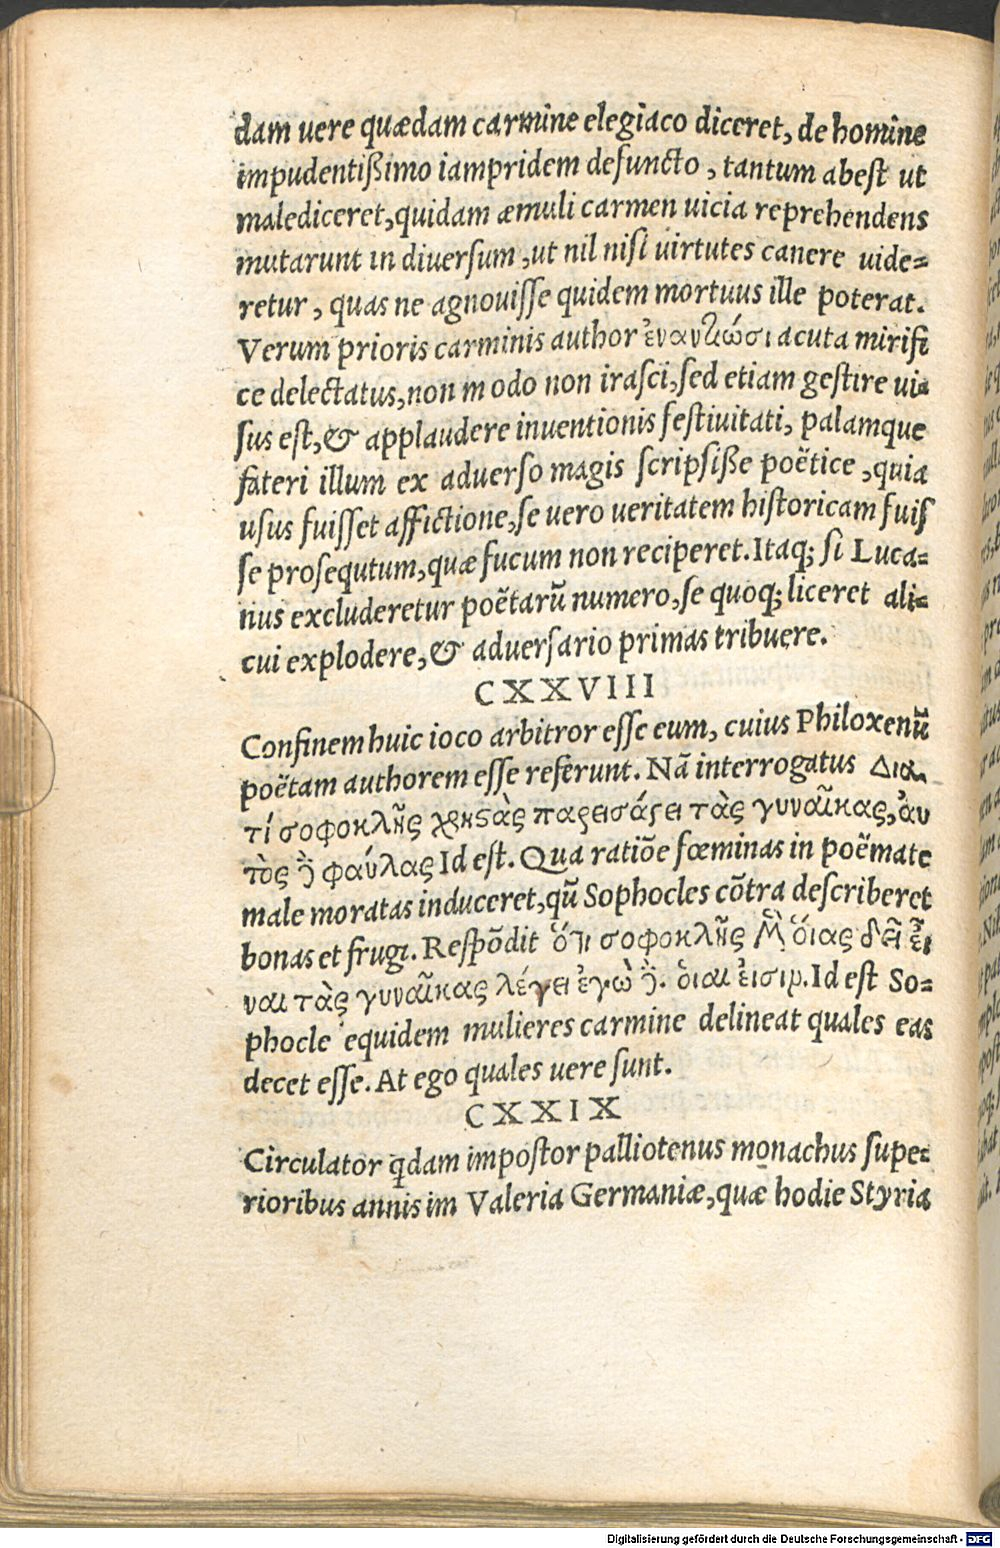 dam uere quædam carmine elegiaco diceret, de homine
impudentißimo iampridem defuncto, tantum abest ut
malediceret, quidam æmuli carmen uicia reprehendens
mutarunt in diuersum, ut nil nisi uirtutes canere uide=
retur, quas ne agnouisse quidem mortuus ille poterat.
Verum prioris carminis author ἐναντιώσι acuta mirifi
ce delectatus, non modo non irasci, sed etiam gestire ui=
sus est, & applaudere inuentionis festiuitati, palamque
fateri illum ex aduerso magis scripsiße poëtice, quia
usus fuisset affictione, se uero ueritatem historicam fuis
se prosequtum, quæ fucum non reciperet. Itaq; si Luca=
nus excluderetur poëtarũ numero, se quoq; liceret ali=
cui explodere, & aduersario primas tribuere.
CXXVIII
Confinem huic ioco arbitror esse eum, cuius Philoxenũ
poëtam authorem esse referunt. Nã interrogatus Δια
τί σοφοκλῆς χρηστὰς παρεισάγει τὰς γυναῖκας, ἀυ
τὸς δὲ φαύλας Id est. Qua ratiõe fœminas in poëmate
male moratas induceret, qũ Sophocles cõtra describeret
bonas et frugi. Respõdit ὅτι σοφοκλῆς μὲν ὅιας δεῖ εἶ
ναι τὰς γυναῖκας λέγει ἐγὼ δὲ. ὁιαι ἐισιν. Id est So=
phocle equidem mulieres carmine delineat quales eas
decet esse. At ego quales uere sunt.
CXXIX
Circulator q̃dam impostor palliotenus monachus supe=
rioribus annis im Valeria Germaniæ, quæ hodie Styria
Digitalisierung gefördert durch die Deutsche Forschungsgemeinschaft - DFG